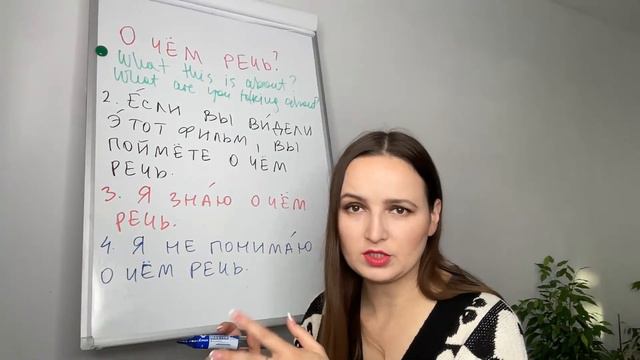 О ЧЁМ РЕЧЬ?
What this is about?
What are you talking about?
2. Е́СЛИ ВЫ ВИ́ДЕЛИ
Э́ТОТ ФИЛЬМ, ВЫ
ПОЙМЁТЕ О ЧЁМ
РЕЧЬ.
3. Я ЗНА́Ю О ЧЁМ
РЕЧЬ.
4. Я НЕ ПОНИМА́Ю
О ЧЁМ РЕЧЬ.